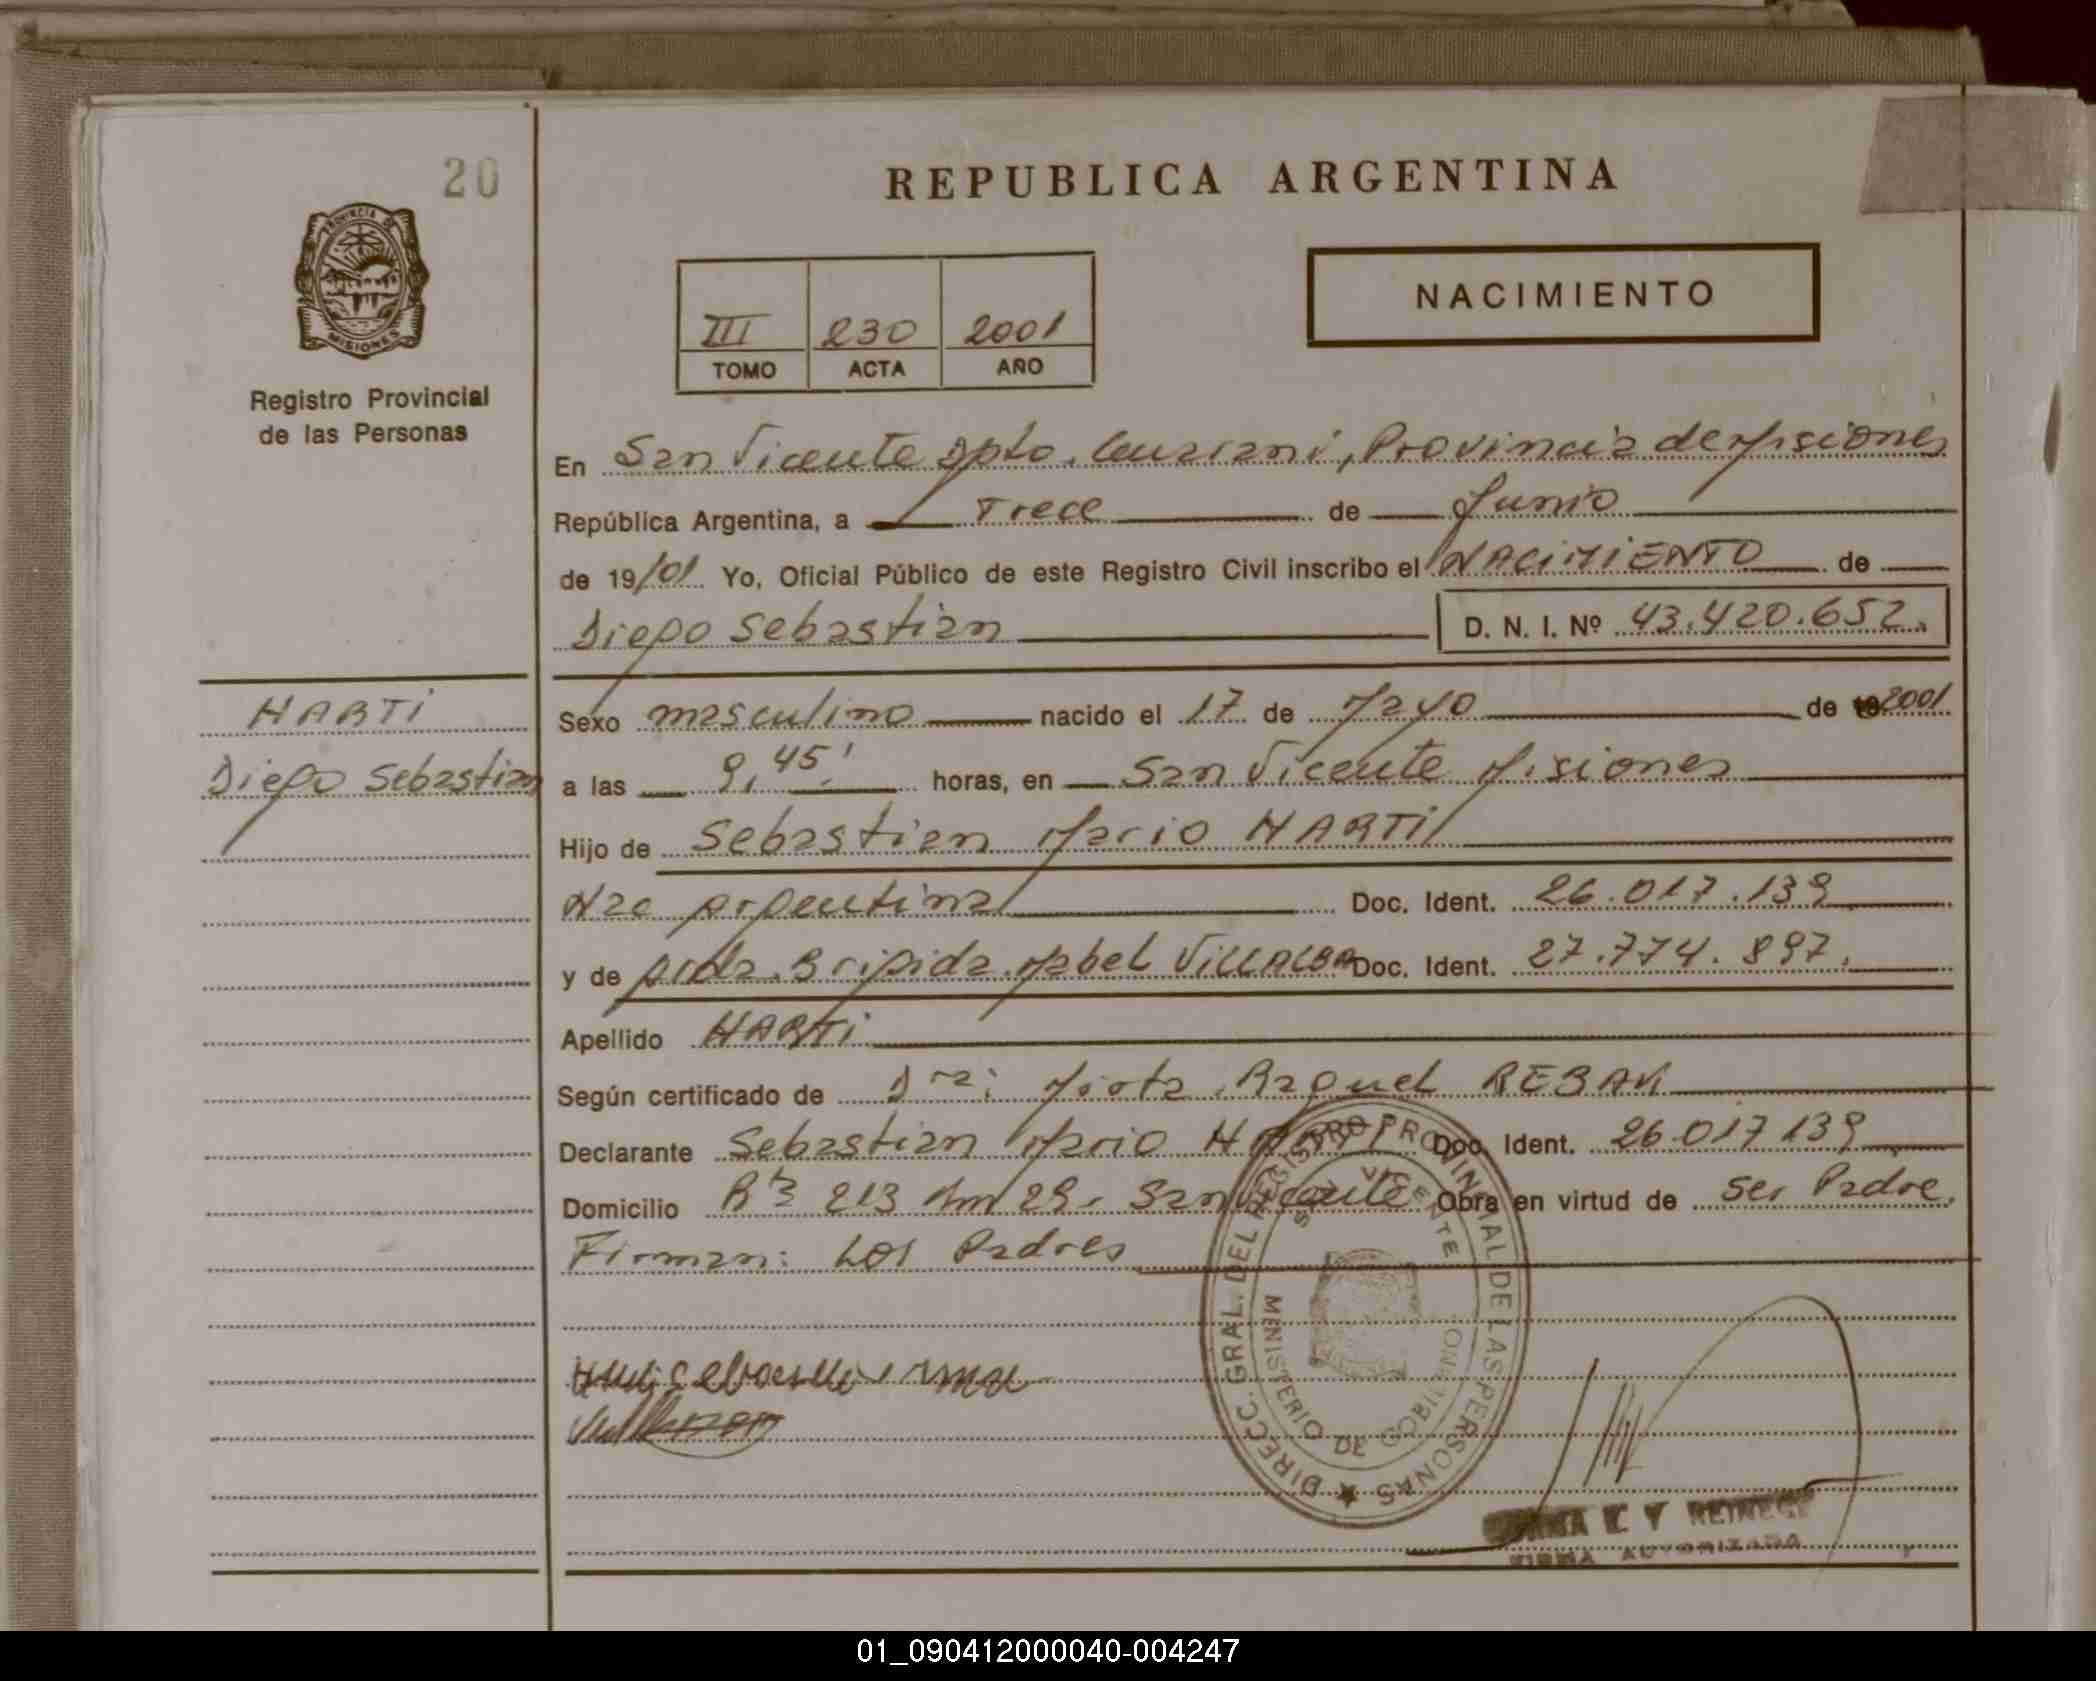 20
REPUBLICA ARGENTINA
PROVINCIA DE
MISIONES
Registro Provincial
de las Personas
III 230 2001
TOMO ACTA AÑO
NACIMIENTO
En San Vicente Dpto. Guarani, Provincia de Misiones
República Argentina, a Trece de Junio
de 19/01 Yo, Oficial Público de este Registro Civil inscribo el NACIMIENTO de
Diego Sebastian D. N. I. Nº 43.420.652.
HARTI
Diego Sebastian
Sexo masculino nacido el 17 de Mayo de 2001
a las 9,45' horas, en San Vicente Misiones
Hijo de Sebastian Mario HARTI
Nac Argentina Doc. Ident. 26.017.139
y de Brigida Mabel VILLALBA Doc. Ident. 27.774.897.
Apellido HARTI
Según certificado de Dra: Raquel
Declarante Sebastian Mario Doc. Ident. 26.017.139
Domicilio Rta 213 Km 29. San Vicente Obra en virtud de ser Padre.
Firman: Los Padres
DIRECC. GRAL. DEL REGISTRO PROVINCIAL DE LAS PERSONAS
SAN VICENTE
MINISTERIO DE GOBIERNO
FIRMA AUTORIZADA
01_090412000040-004247